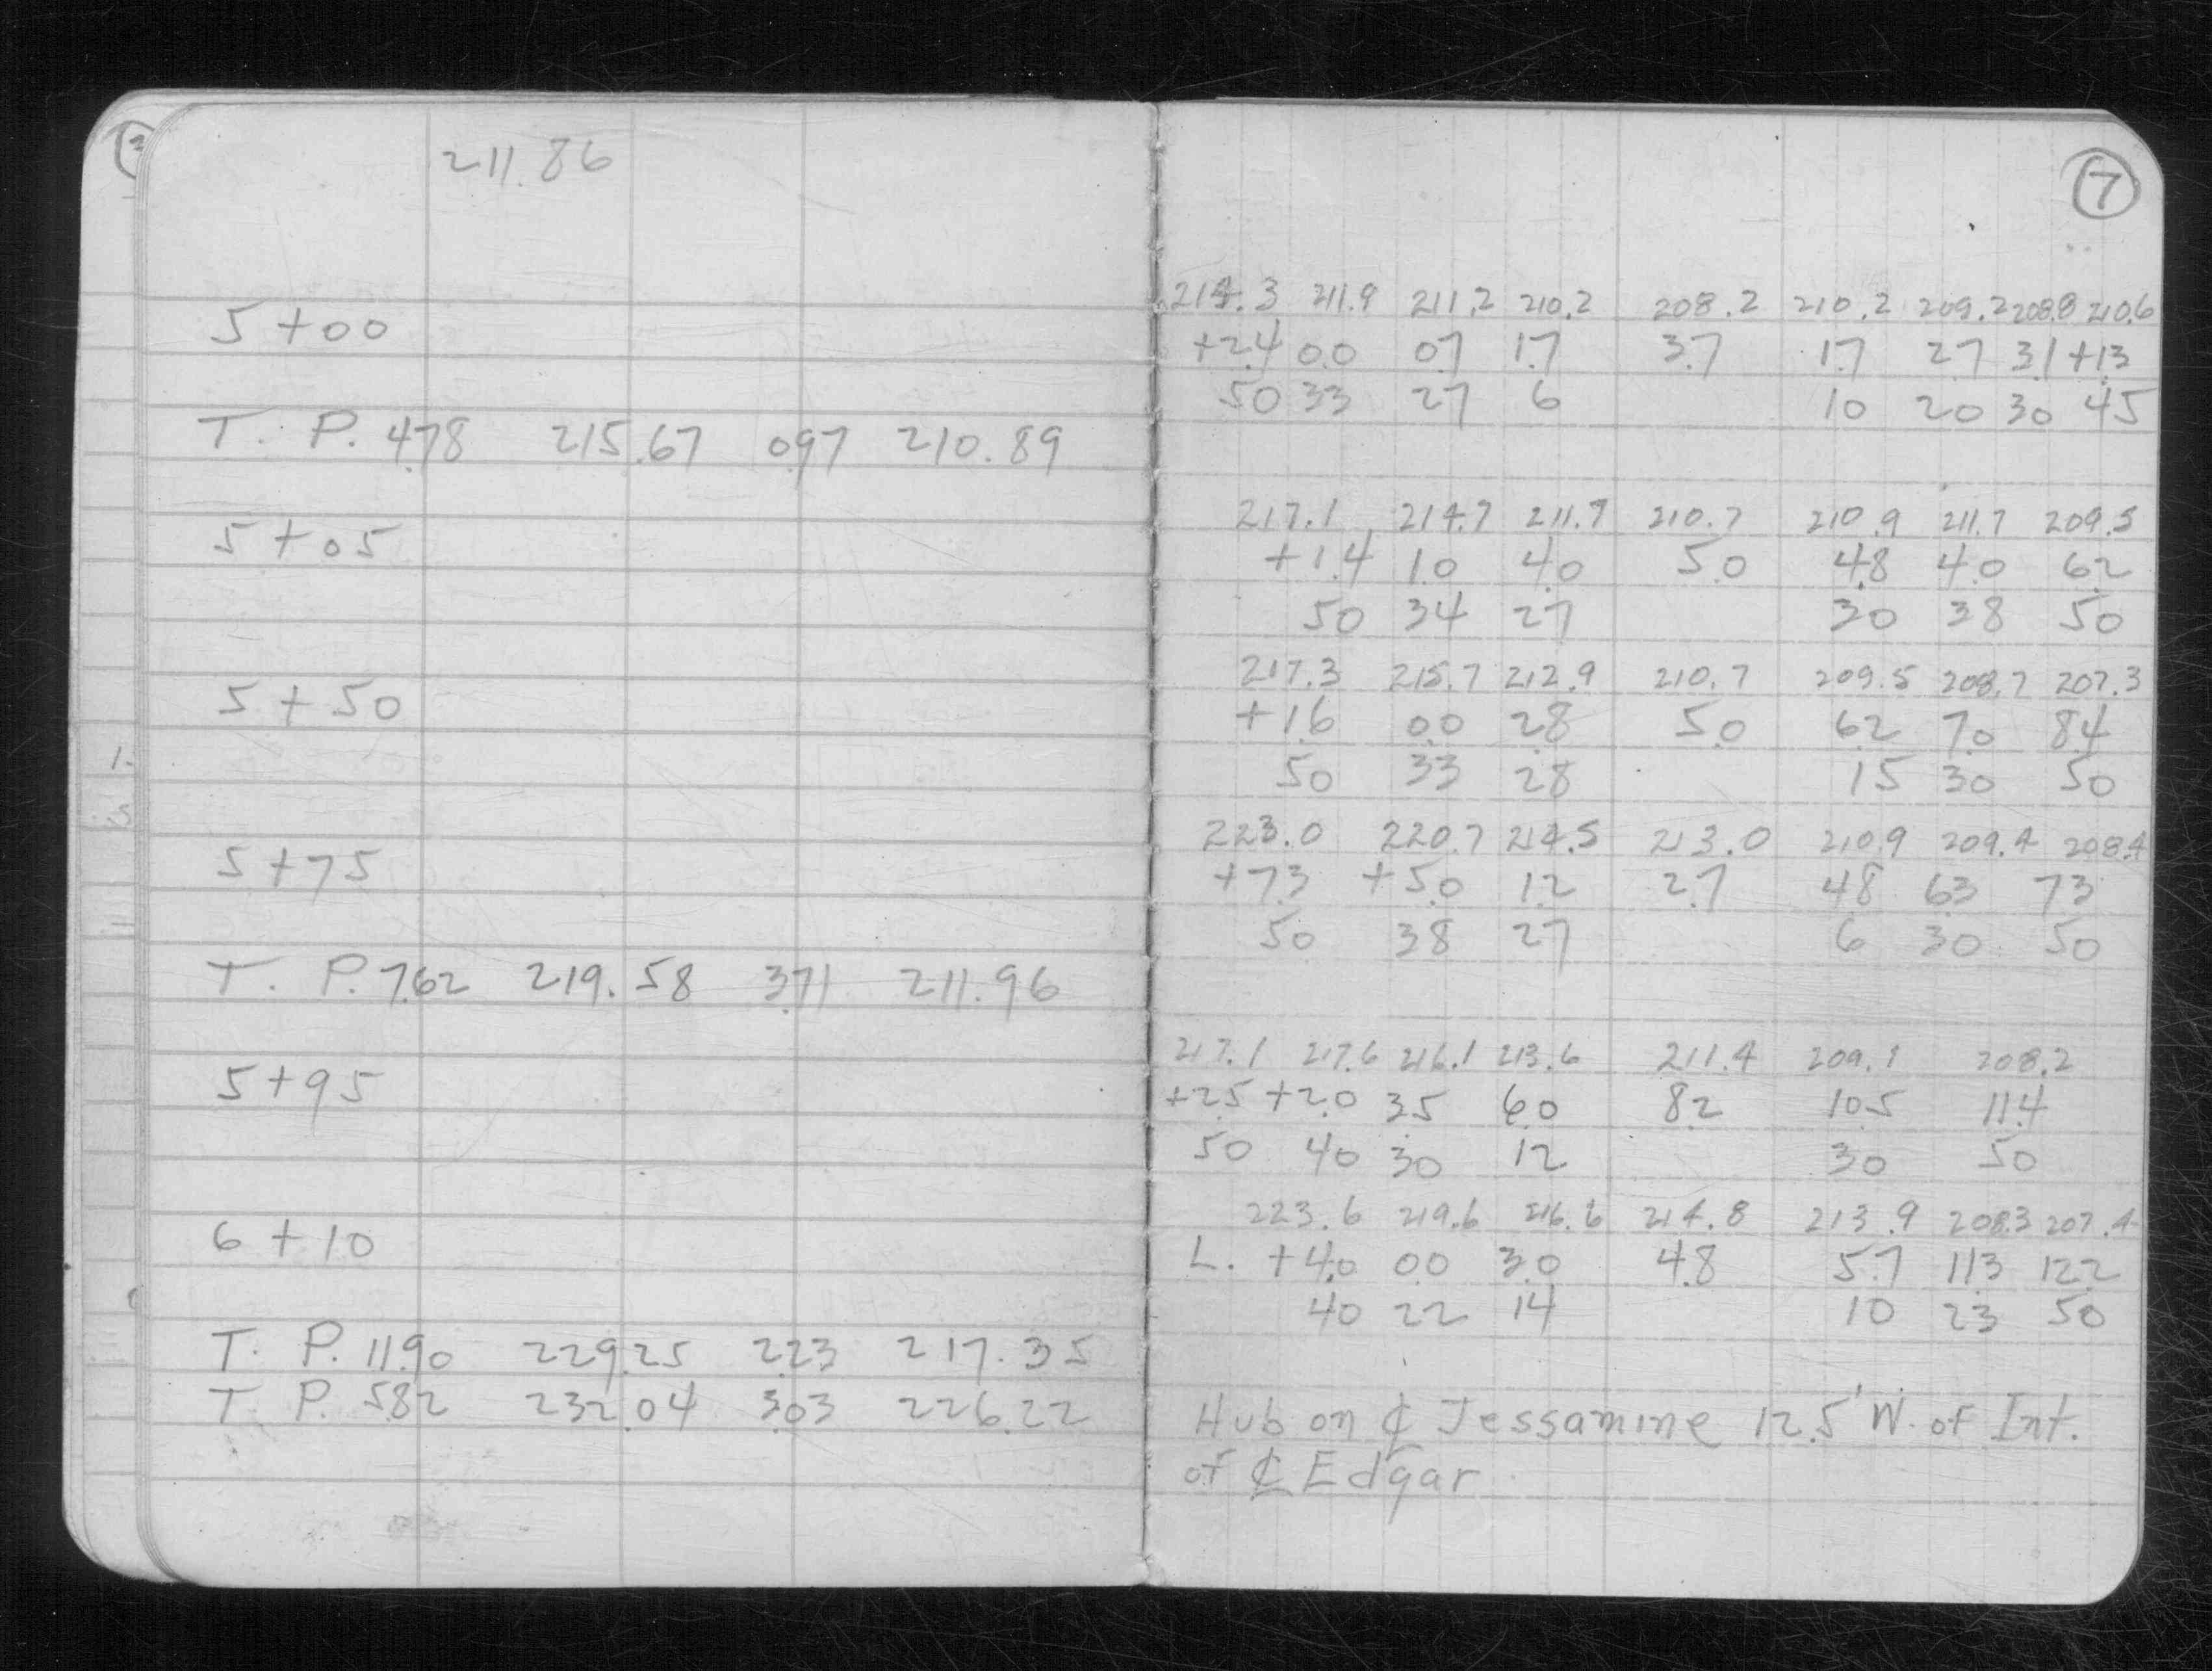 211.86
5+00
T. P. 4.78 215.67 0.97 210.89
5+05
5+50
5+75
T. P. 7.62 219.58 3.71 211.96
5+95
6+10
T. P. 11.90 229.25 2.23 217.35
T. P. 5.82 232.04 3.03 226.22
7
214.3 211.9 211.2 210.2 208.2 210.2 209.2 208.8 210.6
+2.4 0.0 0.7 1.7 3.7 1.7 2.7 3.1 +1.3
50 33 27 6 10 20 30 45
217.1 214.7 211.7 210.7 210.9 211.7 209.5
+1.4 1.0 4.0 5.0 4.8 4.0 6.2
50 34 27 30 38 50
217.3 215.7 212.9 210.7 209.5 208.7 207.3
+1.6 0.0 2.8 5.0 6.2 7.0 8.4
50 33 28 15 30 50
223.0 220.7 214.5 213.0 210.9 209.4 208.4
+7.3 +5.0 1.2 2.7 4.8 6.3 7.3
50 38 27 6 30 50
217.1 217.6 216.1 213.6 211.4 209.1 208.2
+2.5 +2.0 3.5 6.0 8.2 10.5 11.4
50 40 30 12 30 50
223.6 219.6 216.6 214.8 213.9 208.3 207.4
L. +4.0 0.0 3.0 4.8 5.7 11.3 12.2
40 22 14 10 23 50
Hub on ℄ Jessamine 12.5' W. of Int.
of ℄ Edgar